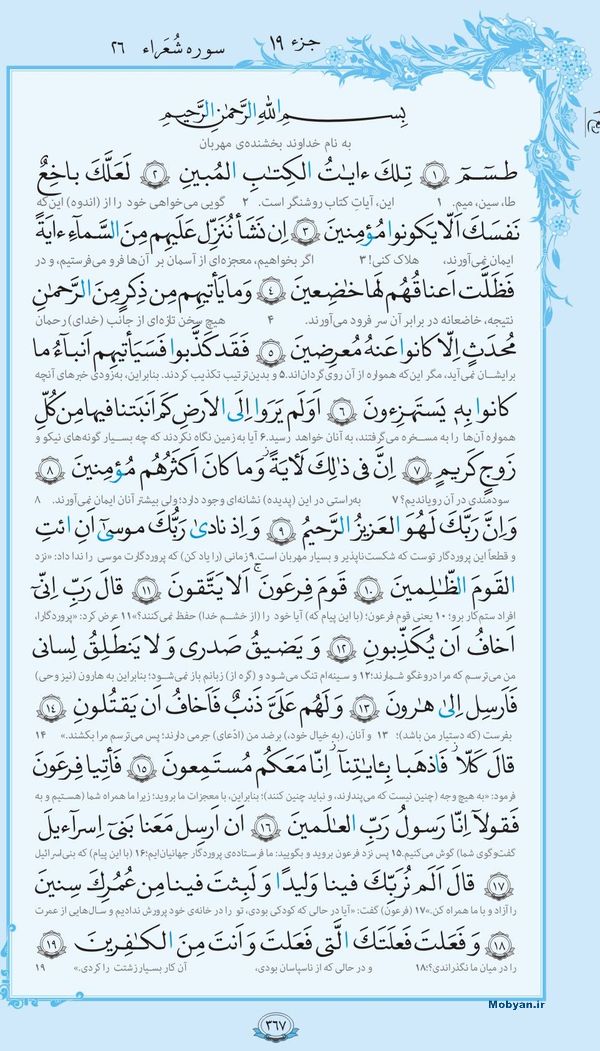 جزء ۱۹ سوره شُعَراء ۲۶
بِسْمِ اللهِ الرَّحمٰنِ الرَّحیمِ
به نام خداوند بخشنده‌ی مهربان
طسٓمٓ ﴿۱﴾ تِلكَ ءایاتُ الكِتابِ المُبینِ ﴿۲﴾ لَعَلَّكَ باخِعٌ
طا، سین، میم. ۱ این، آیاتِ کتاب روشنگر است. ۲ گویی می‌خواهی خود را از (اندوه) این‌که
نَفسَكَ اَلّا یَكونوا مُؤمِنینَ ﴿۳﴾ اِن نَشَأ نُنَزِّل عَلَیهِم مِنَ السَّماءِ ءایَةً
ایمان نمی‌آورند، هلاک کنی! ۳ اگر بخواهیم، معجزه‌ای از آسمان بر آن‌ها فرو می‌فرستیم، و در
فَظَلَّت اَعناقُهُم لَها خاضِعینَ ﴿۴﴾ وَ ما یَأتیهِم مِن ذِكرٍ مِنَ الرَّحمٰنِ
نتیجه، خاضعانه در برابر آن سر فرود می‌آورند. ۴ هیچ سخن تازه‌ای از جانب (خدای) رحمان
مُحدَثٍ اِلّا كانوا عَنهُ مُعرِضینَ ﴿۵﴾ فَقَد كَذَّبوا فَسَیَأتیهِم اَنباءُ ما
برایشان نمی‌آید، مگر این‌که همواره از آن روی‌گردان‌اند. ۵ و بدین‌ترتیب تکذیب کردند. بنابراین، به‌زودی خبرهای آنچه
كانوا بِهٖ یَستَهزِءونَ ﴿۶﴾ اَوَلَم یَرَوا اِلَی الاَرضِ كَم اَنبَتنا فیها مِن كُلِّ
همواره آن‌ها را به مسخره می‌گرفتند، به آنان خواهد رسید. ۶ آیا به زمین نگاه نکردند که چه بسیار گونه‌های نیکو و
زَوجٍ كَریمٍ ﴿۷﴾ اِنَّ فی ذالِكَ لَأیَةً وَ ما كانَ اَكثَرُهُم مُؤمِنینَ ﴿۸﴾
سودمندی در آن رویاندیم؟ ۷ به‌راستی در این (پدیده) نشانه‌ای وجود دارد؛ ولی بیشتر آنان ایمان نمی‌آورند. ۸
وَ اِنَّ رَبَّكَ لَهُوَ العَزیزُ الرَّحیمُ ﴿۹﴾ وَ اِذ نادیٰ رَبُّكَ موسیٰ اَنِ ائتِ
و قطعاً این پروردگار توست که شکست‌ناپذیر و بسیار مهربان است. ۹ زمانی (را یاد کن) که پروردگارت موسی را ندا داد: «نزد
القَومَ الظّالِمینَ ﴿۱۰﴾ قَومَ فِرعَونَ اَلا یَتَّقونَ ﴿۱۱﴾ قالَ رَبِّ اِنّی
افراد ستم‌کار برو؛ ۱۰ یعنی قوم فرعون؛ (با این پیام که) آیا خود را (از خشم خدا) حفظ نمی‌کنند؟» ۱۱ عرض کرد: «پروردگارا،
اَخافُ اَن یُكَذِّبونِ ﴿۱۲﴾ وَ یَضیقُ صَدری وَ لا یَنطَلِقُ لِسانی
من می‌ترسم که مرا دروغگو شمارند؛ ۱۲ و سینه‌ام تنگ می‌شود و (گره از) زبانم باز نمی‌شود؛ بنابراین به هارون (نیز وحی)
فَاَرسِل اِلیٰ هٰرونَ ﴿۱۳﴾ وَ لَهُم عَلَیَّ ذَنبٌ فَاَخافُ اَن یَقتُلونِ ﴿۱۴﴾
بفرست (که دستیار من باشد)؛ ۱۳ و آنان، (به خیال خود،) برضد من (ادّعای) جرمی دارند؛ پس می‌ترسم مرا بکشند.» ۱۴
قالَ كَلّا فَاذهَبا بِـٔایاتِنا اِنّا مَعَكُم مُستَمِعونَ ﴿۱۵﴾ فَأتِیا فِرعَونَ
فرمود: «به هیچ وجه (چنین نیست که می‌پندارند، و نباید چنین کنند)؛ بنابراین، با معجزات ما بروید؛ زیرا ما همراه شما (هستیم و به
فَقولا اِنّا رَسولُ رَبِّ العالَمینَ ﴿۱۶﴾ اَن اَرسِل مَعَنا بَنی اِسراءیلَ
گفت‌وگوی شما) گوش می‌کنیم. ۱۵ پس نزد فرعون بروید و بگویید: ما فرستاده‌ی پروردگار جهانیان‌ایم؛ ۱۶ (با این پیام) که بنی‌اسرائیل
﴿۱۷﴾ قالَ اَلَم نُرَبِّكَ فینا وَلیدًا وَ لَبِثتَ فینا مِن عُمُرِكَ سِنینَ
را آزاد و با ما همراه کن.» ۱۷ (فرعون) گفت: «آیا در حالی که کودکی بودی، تو را در خانه‌ی خود پرورش ندادیم و سال‌هایی از عمرت
﴿۱۸﴾ وَ فَعَلتَ فَعلَتَكَ الَّتی فَعَلتَ وَ اَنتَ مِنَ الكافِرینَ ﴿۱۹﴾
را در میان ما نگذراندی؟! ۱۸ و در حالی که از ناسپاسان بودی، آن کار بسیار زشتت را کردی.» ۱۹
Mobyan.ir
۳۶۷